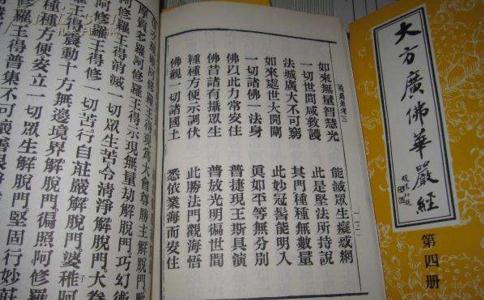 大方廣佛華嚴經
第四册
如來無量智慧光 能滅眾生癡惑網
一切世間咸救護 此是堅法所持說
法城廣大不可窮 其門種種無數量
如來處世大開闡 此妙冠髻能明入
一切諸佛一法身 真如平等無分別
佛以此力常安住 普捷現王斯具演
佛昔諸有攝眾生 普放光明徧世間
種種方便示調伏 此勝法門觀海悟
佛觀一切諸國土 悉依業海而安住
羅阿修羅王得現為大會尊勝主解脫門
羅阿修羅王得示現無量劫解脫門巧幻術
修羅王得消滅一切眾生苦令清淨解脫門大眷
羅王得修一切苦行自莊嚴解脫門婆稚阿
王得震動十方無邊境界解脫門徧照阿修羅
種種方便安立一切眾生解脫門堅固行妙莊
羅王得普集不可壞善根